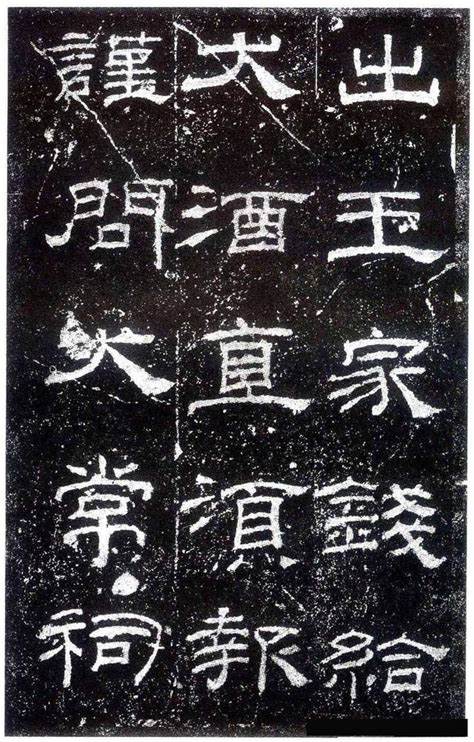 出王家錢給
大酒直湏報
謹問大常祠